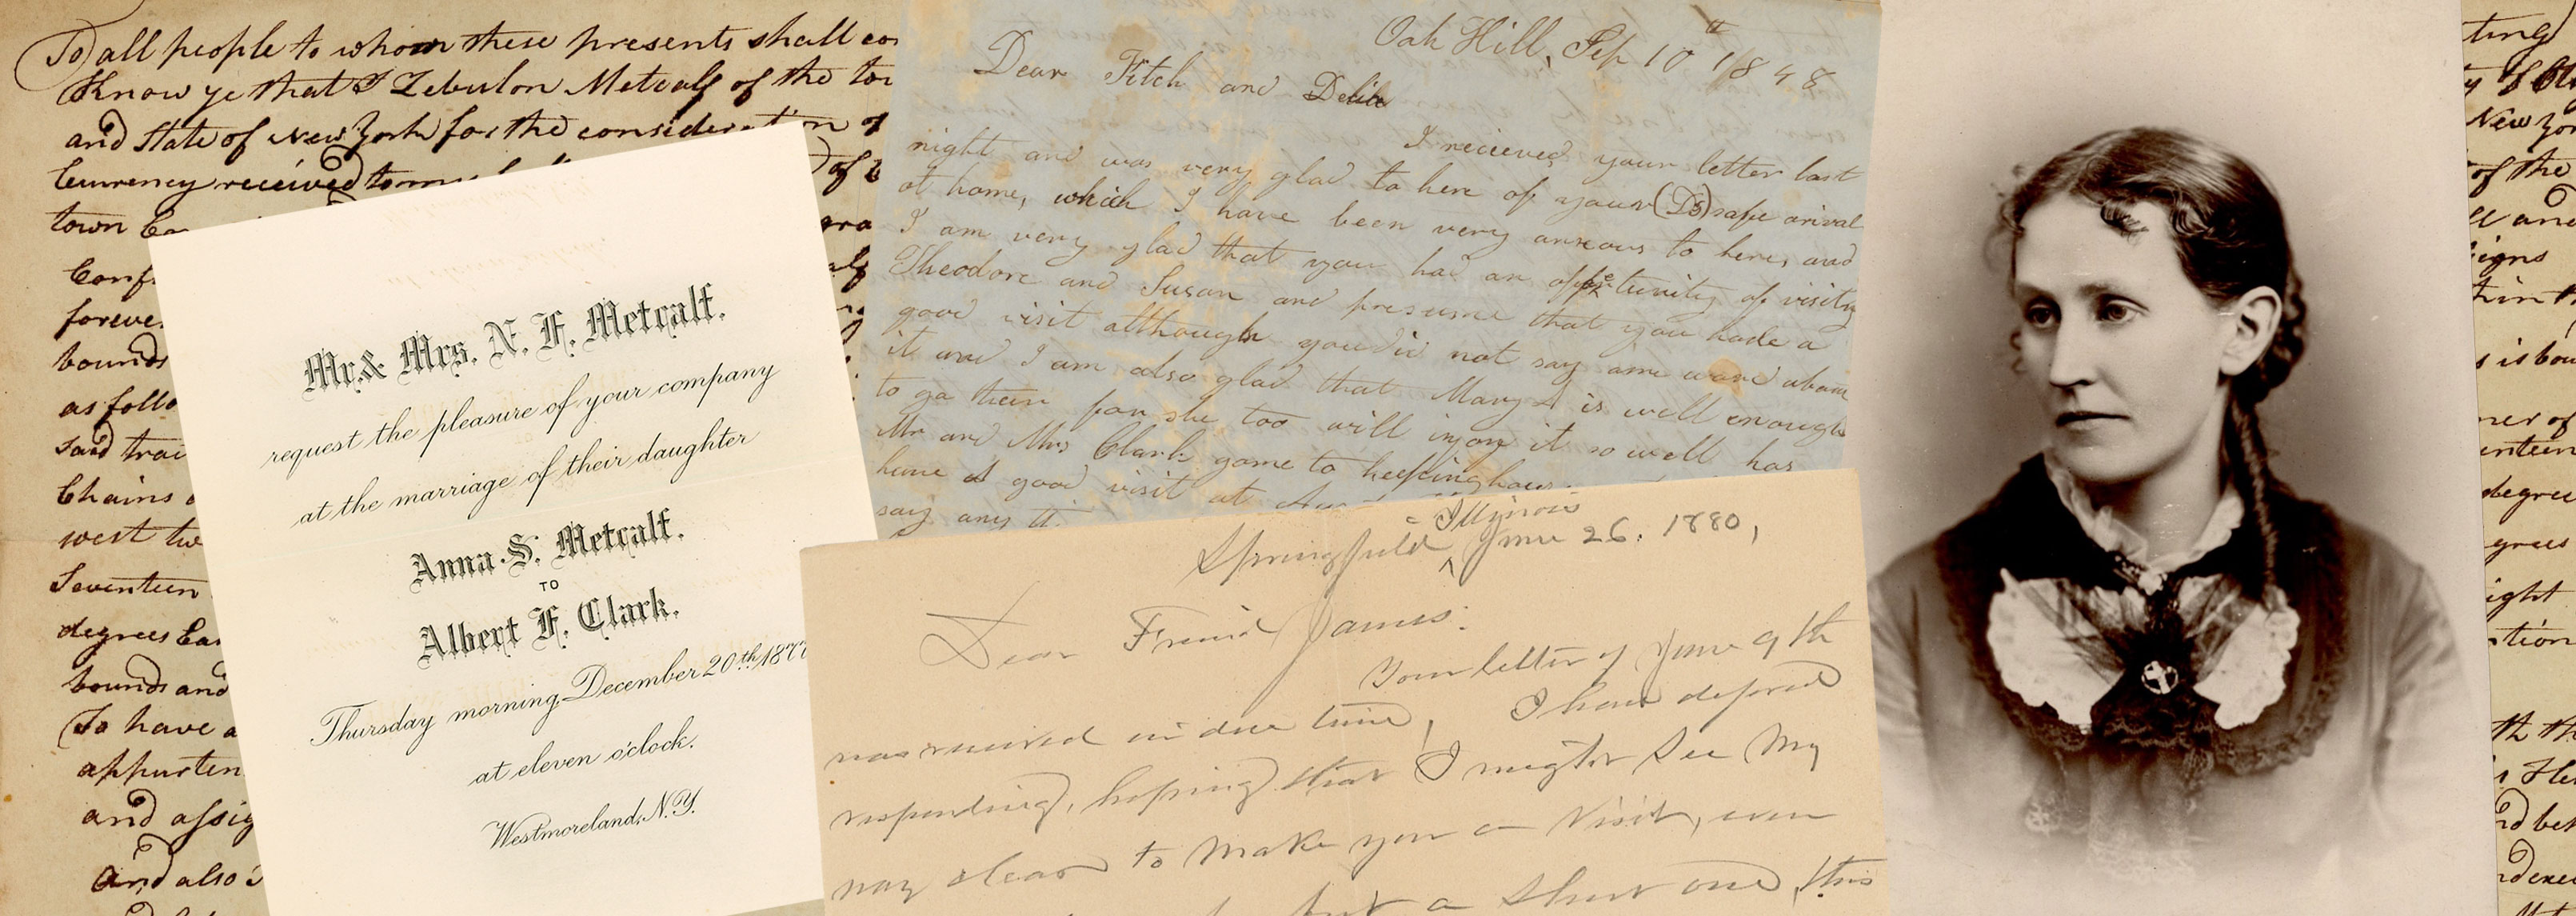 To all people to whom these presents shall co
Know ye that I Zebulon Metcalf of the to
and State of New York for the consideration of
Currency received to my
of
town
Conf
foreve
bounds
as follo
said trac
Chains
west tw
Seventeen
degrees Ea
bounds and
To have a
appurten
and assig
And also
Mr. & Mrs. N. F. Metcalf.
request the pleasure of your company
at the marriage of their daughter
Anna S. Metcalf.
TO
Albert F. Clark.
Thursday morning, December 20th, 1877
at eleven o'clock.
Westmoreland, N.Y.
Oak Hill, Sep 10th 1848
Dear Fitch and Delia
I recieved your letter last
night and was very glad to here of your (Ds) safe arival
at home, which I have been very anxious to here, and
I am very glad that you had an oppertunity of visiting
Theodore and Susan and presume that you hade a
good visit although you did not say aine word about
it and I am also glad that Mary A is well enough
to go then for she too will injoy it so well has
Mr and Mrs Clark gone to keeping house
have a good visit at
say any
Springfield Illinois June 26. 1880,
Dear Friend James:
Your letter of June 9th
was received in due time, I have defered
responding, hoping that I might see my
way clear to make you a visit, even
but a short one, this
ting
New Yor
of the
ll and
signs
s is bou
ner of
enteen
degree
grees
ight
tion
th th
nd bet